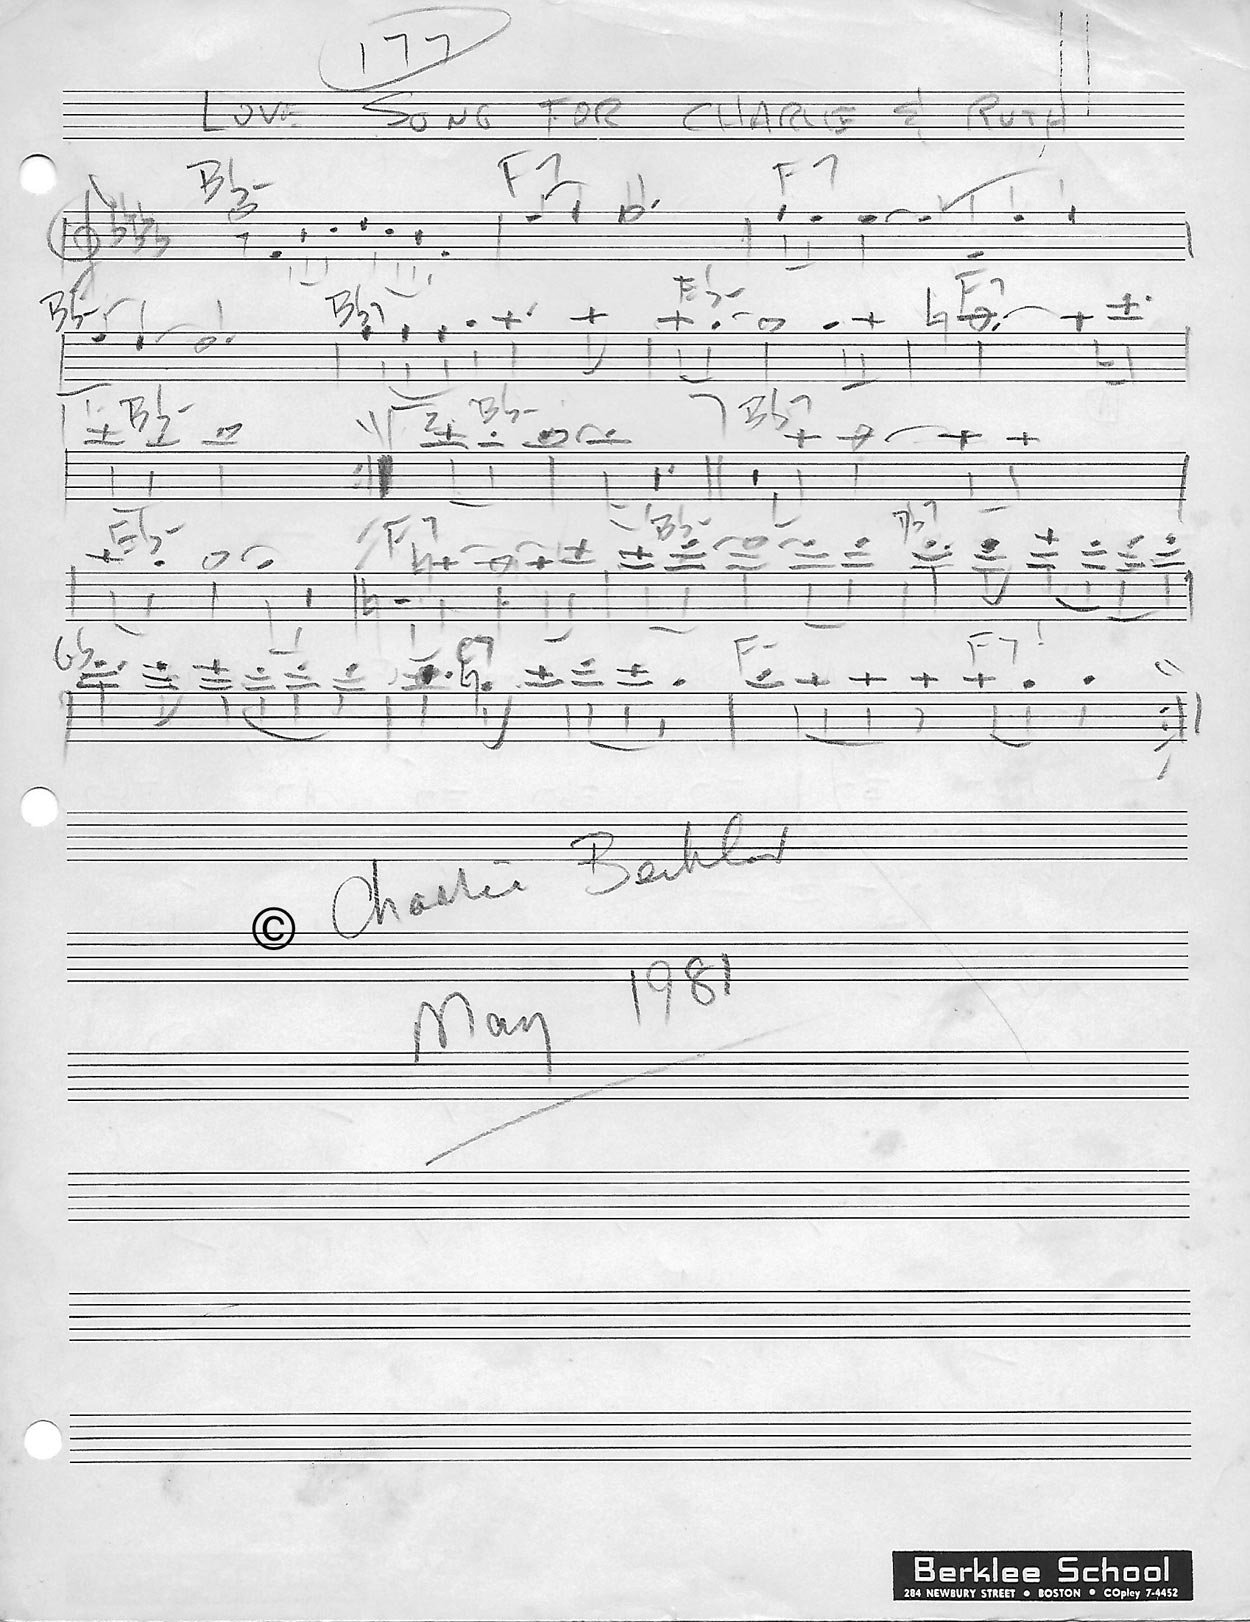 177
LOVE SONG FOR CHARLIE & RUTH
Bb- F7 F7
Bb- Bb7 Eb- F7
1. Bb- 2. Bb- Bb7
Eb- F7 Bb- Bb7
Gb C7 F- F7
© Charlie
May 1981
Berklee School
284 NEWBURY STREET • BOSTON • COpley 7-4452